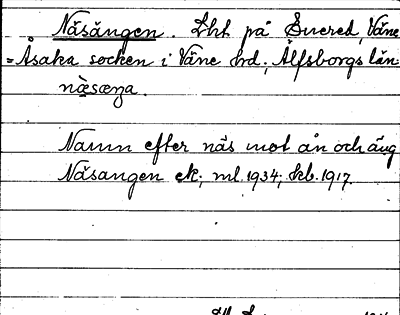 Näsängen. Lht på Suered, Väne
=Åsaka socken i Väne hd; Älfsborgs län
næ̀sæŋa.
Namn efter näs mot ån och äng
Näsangen ek; ml. 1934; kb. 1917.